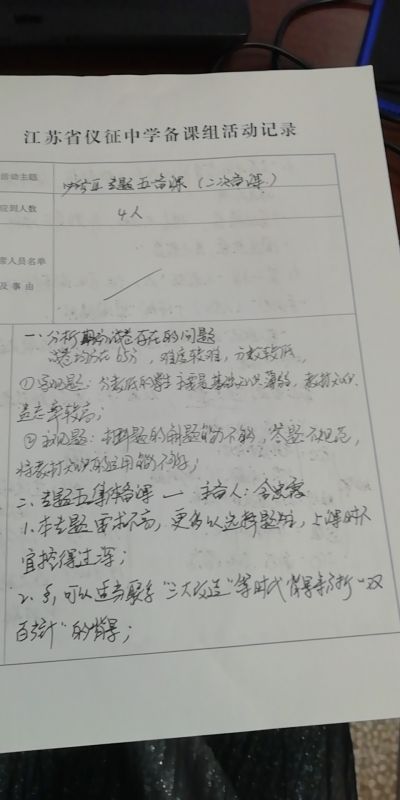 江苏省仪征中学备课组活动记录
活动主题
专题五备课（二次备课）
应到人数
4人
席人员名单
及 事 由
一、分析期初试卷存在的问题
试卷均分在65分，难度较难，分数较低
①客观题：分数低的学生主要是基础知识薄弱，教材知识
遗忘率较高；
②主观题：材料题的审题能力不够，答题不规范，
将教材知识的运用能力不好；
二、专题五集体备课 — 主备人：
1.本专题要求不高，更多以选择题为主，上课时不
宜挖得过深；
2. 可以适当联系"三大改造"等时代背景来分析"双
百方针"的背景；